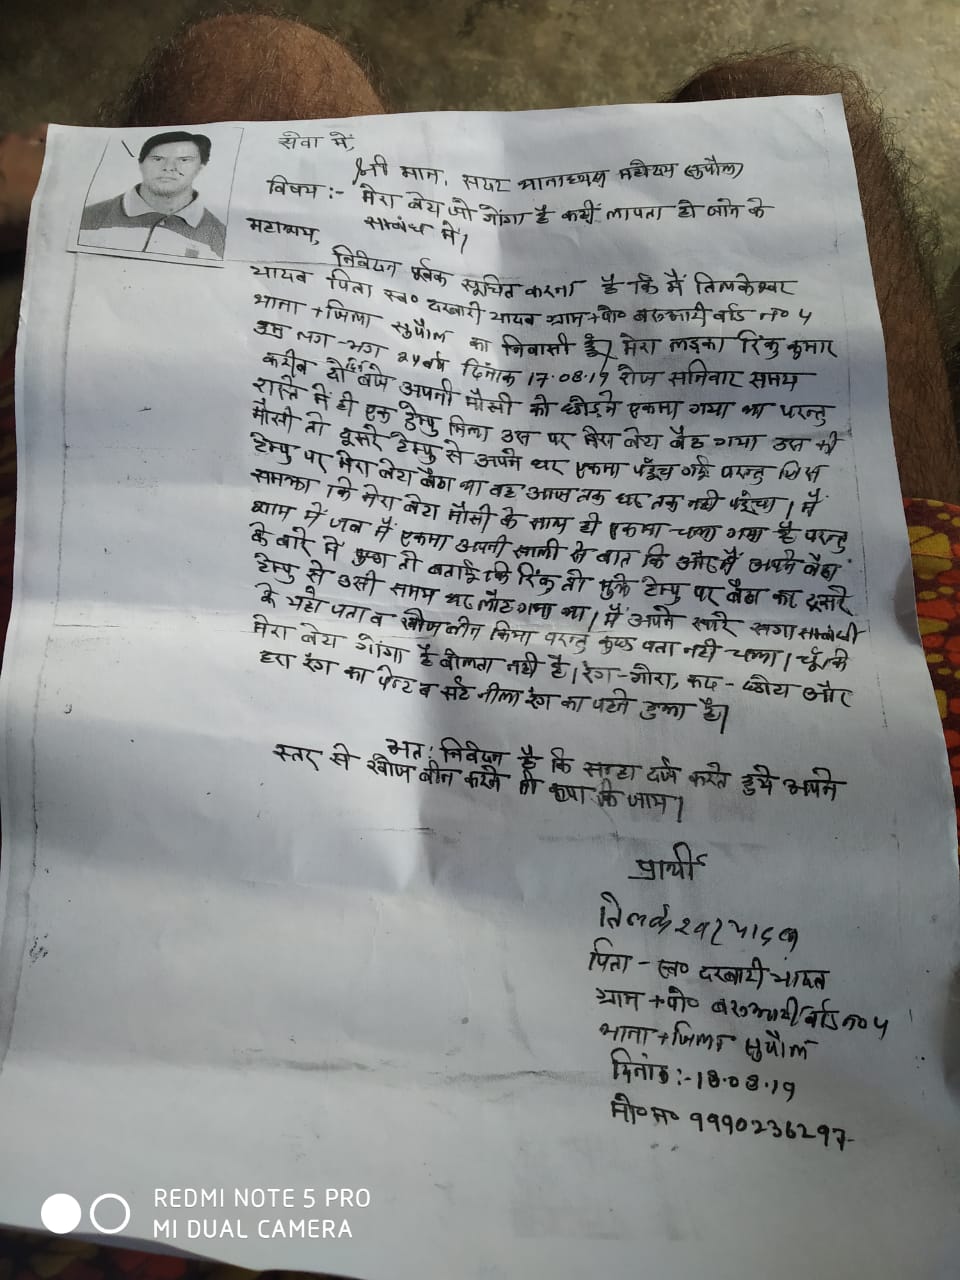 सेवा में,
श्री मान, सदर थानाध्यक्ष महोदय (सुपौल)
विषय :- मेरा बेटा जो गोंगा है कहीं लापता हो जाने के
सम्बंध में।
महाशय,
निवेदन पूर्वक सूचित करना है कि मैं तिलकेश्वर
यादव पिता स्व० दरबारी यादव ग्राम+पो० बरूआरी वार्ड no ५
थाना + जिला सुपौल का निवासी हूँ। मेरा लड़का रिंकु कुमार
उम्र लग-भग २५ वर्ष दिनांक 17.08.19 रोज सनिवार समय
करीब दो बजे अपनी मौसी को छोड़ने एकमा गया था परन्तु
रास्ते में ही एक टेम्पु मिला उस पर मेरा बेटा बैठ गया उस की
मौसी तो दूसरे टेम्पु से अपने घर एकमा पहुँच गई परन्तु जिस
टेम्पु पर मेरा बेटा बैठा था वह आज तक घर तक नही पहुंचा। मैं
समझा कि मेरा बेटा मौसी के साथ ही एकमा चला गया है परन्तु
शाम में जब मैं एकमा अपनी साली से बात कि और मैं अपने बेटा
के बारे में पुछा तो बताई कि रिंकु तो मुझे टेम्पु पर बैठा कर दूसरे
टेम्पु से उसी समय घर लौट गया था। मैं अपने सारे सगा सम्बंधी
के यहाँ पता व खोजबीन किया परन्तु कुछ पता नही चला। चूँकि
मेरा बेटा गोंगा है बोलता नही है। रंग-गोरा, कद-छोटा और
हरा रंग का पेन्ट व सर्ट नीला रंग का पहने हुआ है।
अत: निवेदन है कि सन्हा दर्ज करते हुये अपने
स्तर से खोज बीन करने की कृपा कि जाय।
प्रार्थी
तिलकेश्वर यादव
पिता - स्व० दरबारी यादव
ग्राम + पो० बरूआरी वार्ड no ५
थाना + जिला सुपौल
दिनांक :- 18.08.19
मो० न० 9990236297
REDMI NOTE 5 PRO
MI DUAL CAMERA